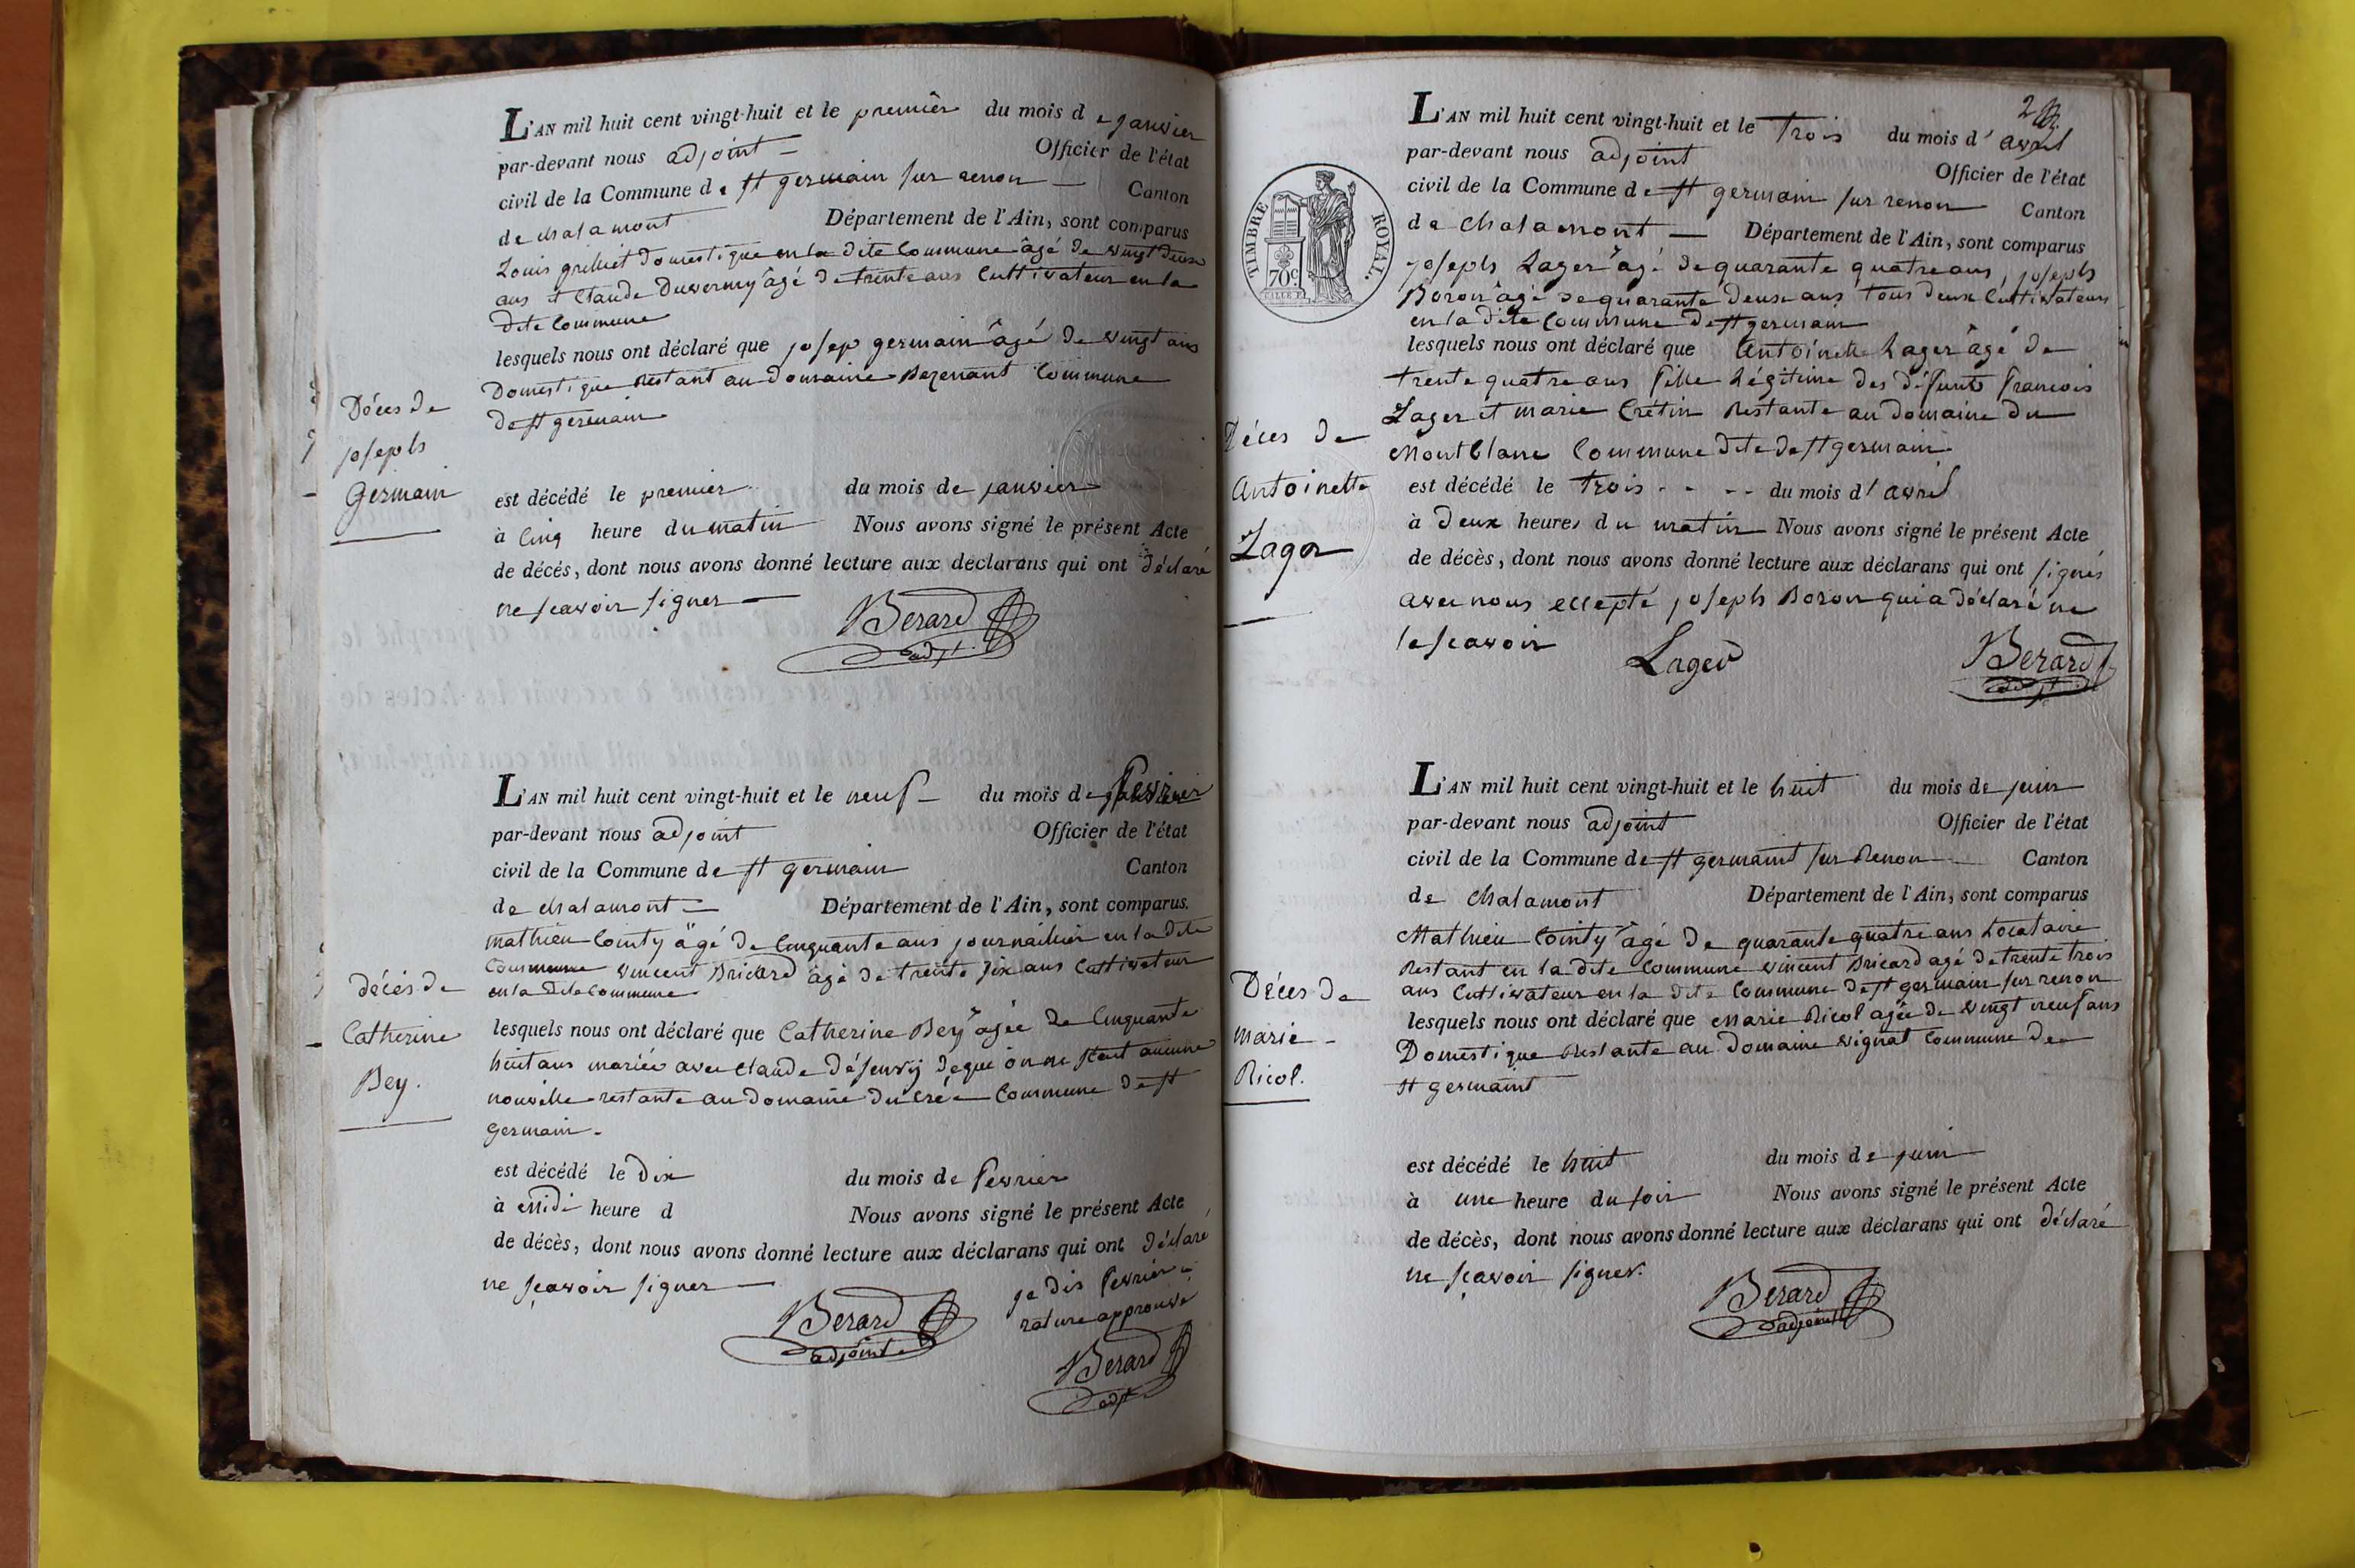 L'AN mil huit cent vingt-huit et le premièr du mois de janvier
par-devant nous adjoint — Officier de l'état
civil de la Commune de st germain sur renon — Canton
de chalamont Département de l'Ain, sont comparus
Louis grilliet domestique en la dite Commune âgé de vingt deux
ans et Claude Duvermy âgé de trente ans Cultivateur en la
dite Commune
lesquels nous ont déclaré que josep germain âgé de vingt ans
Domestique Restant au domaine Bezenant Commune
de st germain
Déces de
joseph
Germain
est décédé le premier du mois de janvier
à Cinq heure du matin Nous avons signé le présent Acte
de décès, dont nous avons donné lecture aux déclarans qui ont déclaré
ne scavoir signer —
Berard
adjt
L'AN mil huit cent vingt-huit et le neuf — du mois de
par-devant nous adjoint Officier de l'état
civil de la Commune de st germain Canton
de chalamont — Département de l'Ain, sont comparus
mathieu Cointy âgé de Cinquante ans journailier en la dite
Commune vincent Bricard âgé de trente six ans Cultivateur
en la dite Commune
lesquels nous ont déclaré que Catherine Bey âgée de Cinquante
huit ans mariée avec Claude de que on ne aucune
nouvelle restante au domaine du Commune de st
germain -
décés de
Catherine
Bey.
est décédé le dix du mois de fevrier
à Midi heure d Nous avons signé le présent Acte
de décès, dont nous avons donné lecture aux déclarans qui ont déclaré
ne scavoir signer —
Berard
adjoint
je dis fevrier
rature approuvé
Berard
adjt
2
L'AN mil huit cent vingt-huit et le Trois du mois d'avril
par-devant nous adjoint Officier de l'état
civil de la Commune de st germain sur renon Canton
de Chalamont — Département de l'Ain, sont comparus
TIMBRE ROYAL.
70 c.
joseph Lager âgé de quarante quatre ans, joseph
Boron âgé de quarante deux ans tous deux Cultivateurs
en la dite Commune de st germain
lesquels nous ont déclaré que Antoinette Lager âgé de
trente quatre ans fille Légitime des défunts francois
Lager et marie Crétin Restante au domaine du
Montblanc Commune dite de st germain
Déces de
Antoinette
Lager
est décédé le trois - - - - du mois d'avril
à Deux heures du matin Nous avons signé le présent Acte
de décès, dont nous avons donné lecture aux déclarans qui ont signés
avec nous eccepté joseph Boron qui a déclaré ne
le scavoir
Lager
Berard
adjt
L'AN mil huit cent vingt-huit et le huit du mois de juin
par-devant nous adjoint Officier de l'état
civil de la Commune de st germaint sur Renon Canton
de Chalamont Département de l'Ain, sont comparus
Mathieu Cointy âgé de quarante quatre ans Locataire
Restant en la dite Commune vincent Bricard agé de trente trois
ans Cultivateur en la dite Commune de st germain sur renon
lesquels nous ont déclaré que Marie Ricol agée de vingt neuf ans
Domestique Restante au domaine vignat Commune de
st germaint
Déces de
marie -
Ricol.
est décédé le huit du mois de juin
à une heure du soir Nous avons signé le présent Acte
de décès, dont nous avons donné lecture aux déclarans qui ont déclaré
ne scavoir signer.
Berard
adjoint